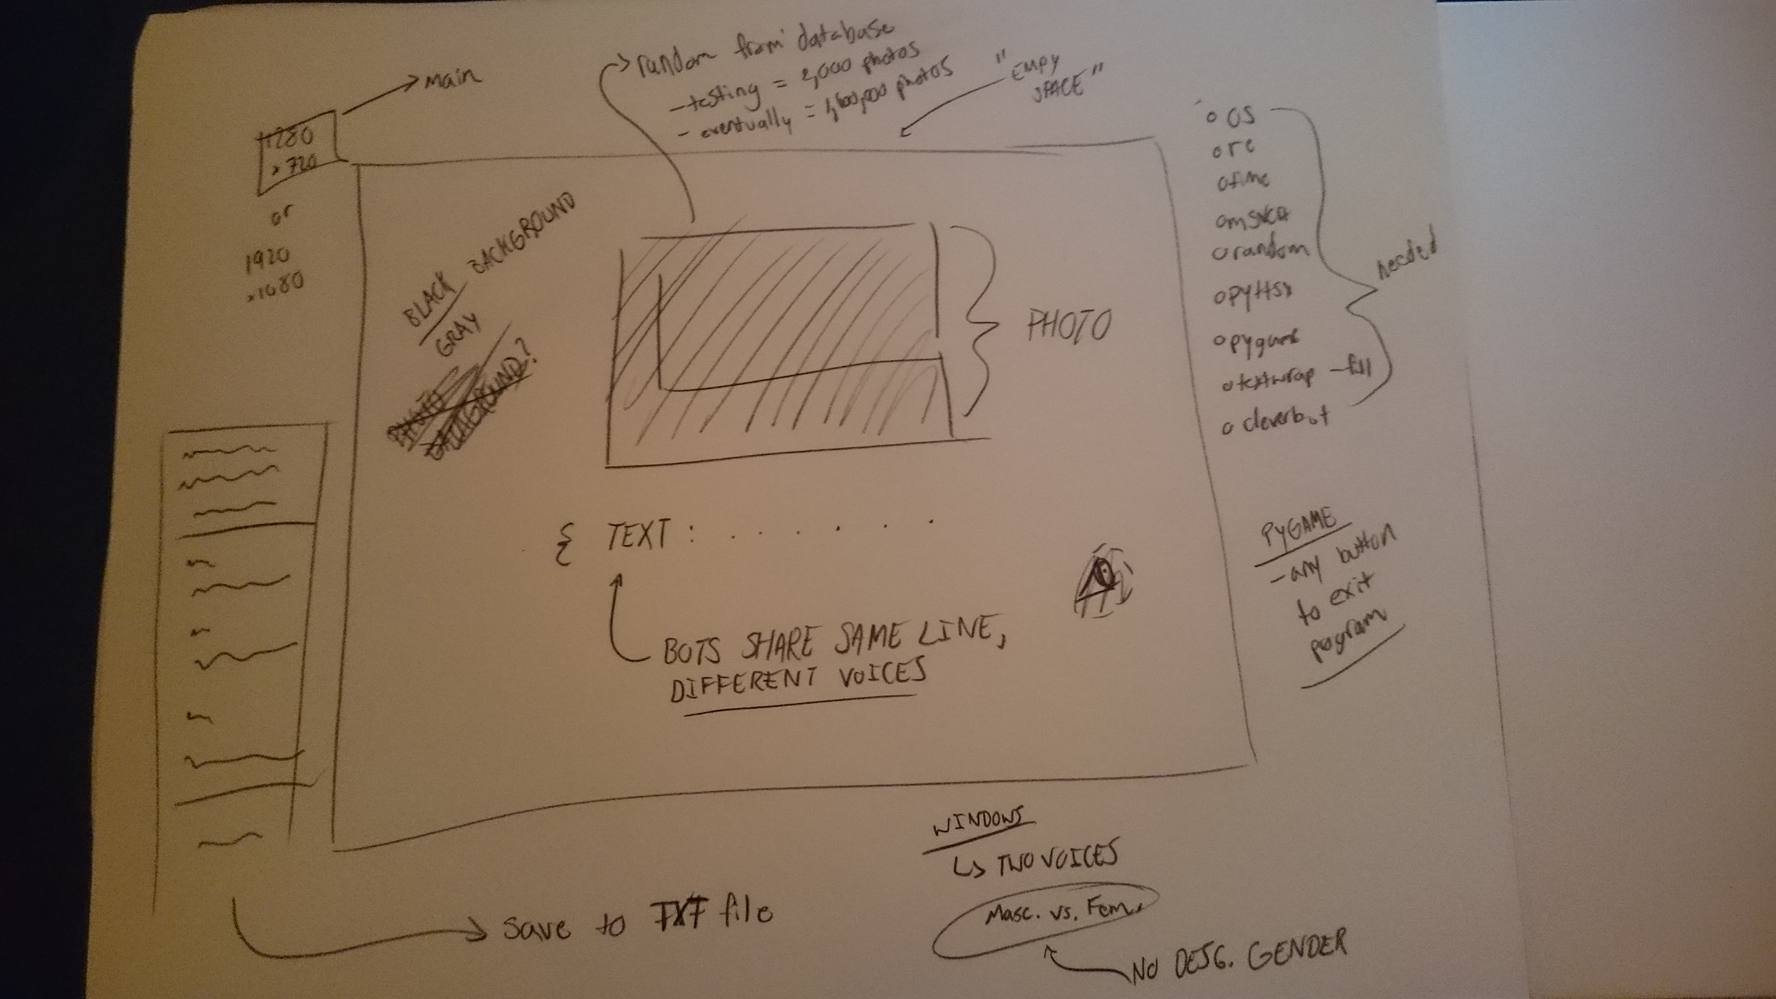 main
1280
x 720
or
1920
x1080
random from database
- testing = 2,000 photos
- eventually = 1,600,000 photos
"EMPY
SPACE"
BLACK BACKGROUND
GRAY
PHOTO
BACKGROUND?
PHOTO
TEXT: . . . . . .
BOTS SHARE SAME LINE,
DIFFERENT VOICES
OS
re
time
random
pygame
textwrap - fill
cleverbot
needed
PYGAME
- any button
to exit
program
save to TXT file
WINDOWS
TWO VOICES
Masc. vs. Fem.
NO DESG. GENDER